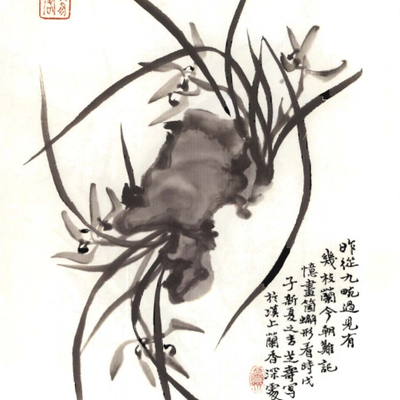 昨從九畹過見有
幾枝蘭今朝難記
憶畫箇蠏形看時戊
子新夏之吉芝壽寫
於上蘭香深處